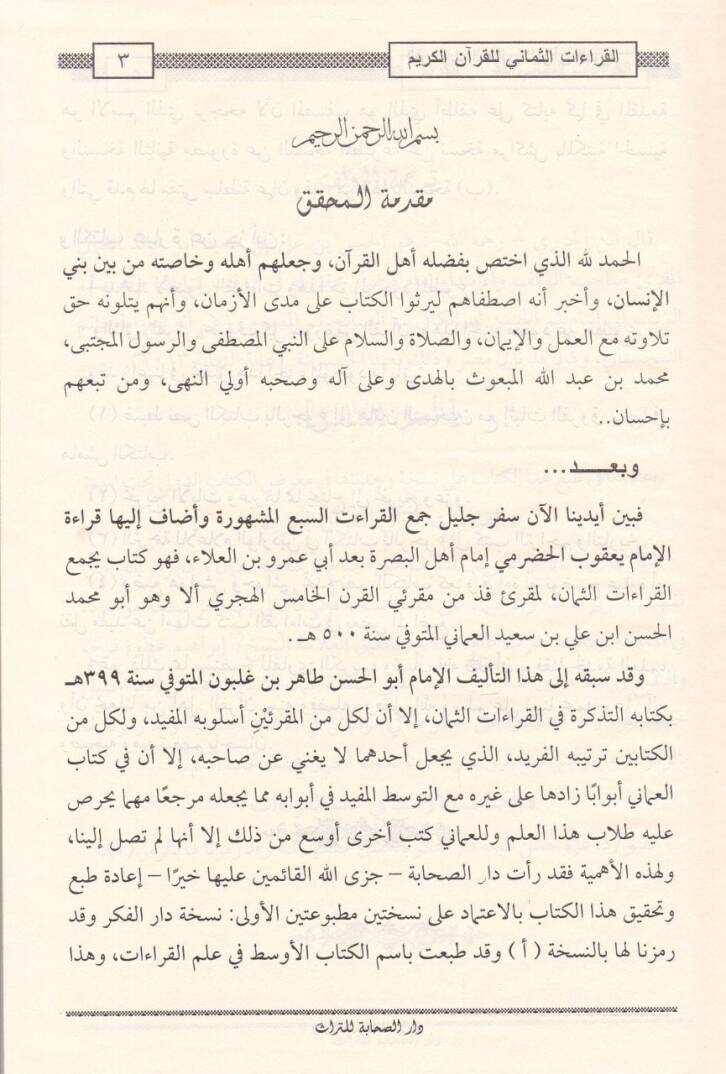 القراءات الثماني للقرآن الكريم
٣
بسم الله الرحمن الرحيم
مقدمة المحقق
الحمد لله الذي اختص بفضله أهل القرآن، وجعلهم أهله وخاصته من بين بني
الإنسان، وأخبر أنه اصطفاهم ليرثوا الكتاب على مدى الأزمان، وأنهم يتلونه حق
تلاوته مع العمل والإيمان، والصلاة والسلام على النبي المصطفى والرسول المجتبى،
محمد بن عبد الله المبعوث بالهدى وعلى آله وصحبه أولي النهى، ومن تبعهم
بإحسان..
وبعـــد...
فبين أيدينا الآن سفر جليل جمع القراءت السبع المشهورة وأضاف إليها قراءة
الإمام يعقوب الحضرمي إمام أهل البصرة بعد أبي عمرو بن العلاء، فهو كتاب يجمع
القراءات الثمان، لمقرئ فذ من مقرئي القرن الخامس الهجري ألا وهو أبو محمد
الحسن ابن علي بن سعيد العماني المتوفي سنة ٥٠٠ هـ .
وقد سبقه إلى هذا التأليف الإمام أبو الحسن طاهر بن غلبون المتوفي سنة ٣٩٩هـ
بكتابه التذكرة في القراءات الثمان، إلا أن لكل من المقرئَيْنِ أسلوبه المفيد، ولكل من
الكتابين ترتيبه الفريد، الذي يجعل أحدهما لا يغني عن صاحبه، إلا أن في كتاب
العماني أبوابًا زادها على غيره مع التوسط المفيد في أبوابه مما يجعله مرجعًا مهما يحرص
عليه طلاب هذا العلم وللعماني كتب أخرى أوسع من ذلك إلا أنها لم تصل إلينا،
ولهذه الأهمية فقد رأت دار الصحابة – جزى الله القائمين عليها خيرًا – إعادة طبع
وتحقيق هذا الكتاب بالاعتماد على نسختين مطبوعتين الأولى: نسخة دار الفكر وقد
رمزنا لها بالنسخة ( أ ) وقد طبعت باسم الكتاب الأوسط في علم القراءات، وهذا
دار الصحابة للتراث